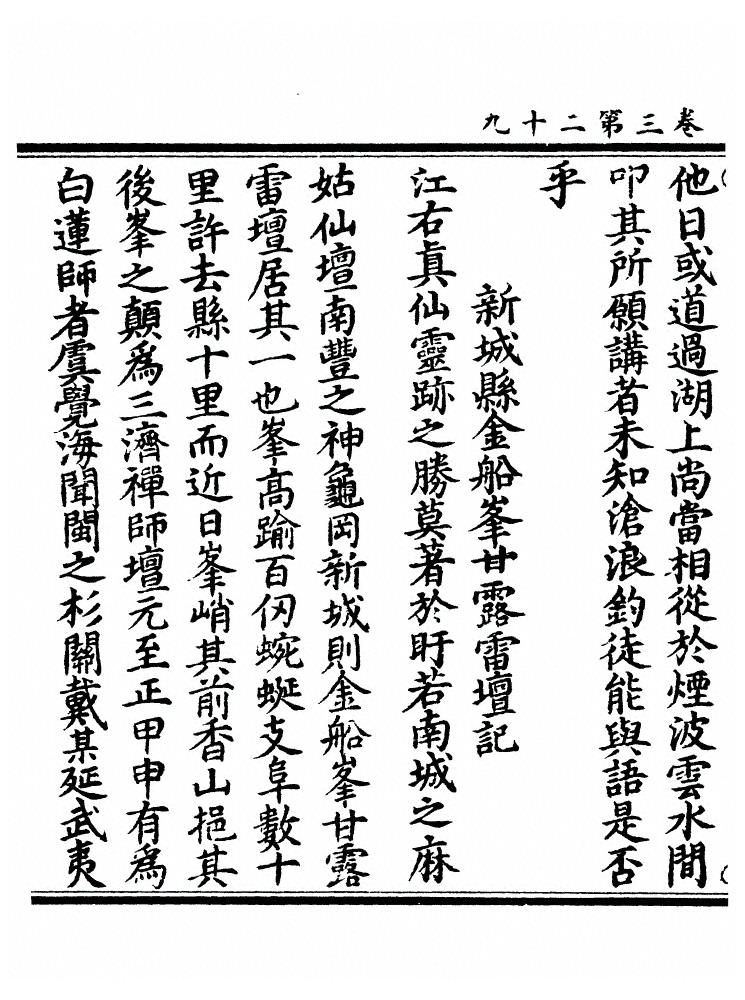 卷三第二十九
他日或道過湖上尚當相從於煙波雲水間
叩其所願講者未知滄浪釣徒能與語是否
乎
新城縣金船峯甘露雷壇記
江右真仙靈跡之勝莫著於盱若南城之麻
姑仙壇南豐之神龜岡新城則金船峯甘露
雷壇居其一也峯高踰百仞蜿蜒支阜數十
里許去縣十里而近日峯峭其前香山挹其
後峯之顛為三濟禪師壇元至正甲申有為
白蓮師者虞覺海聞閩之杉關戴某延武夷